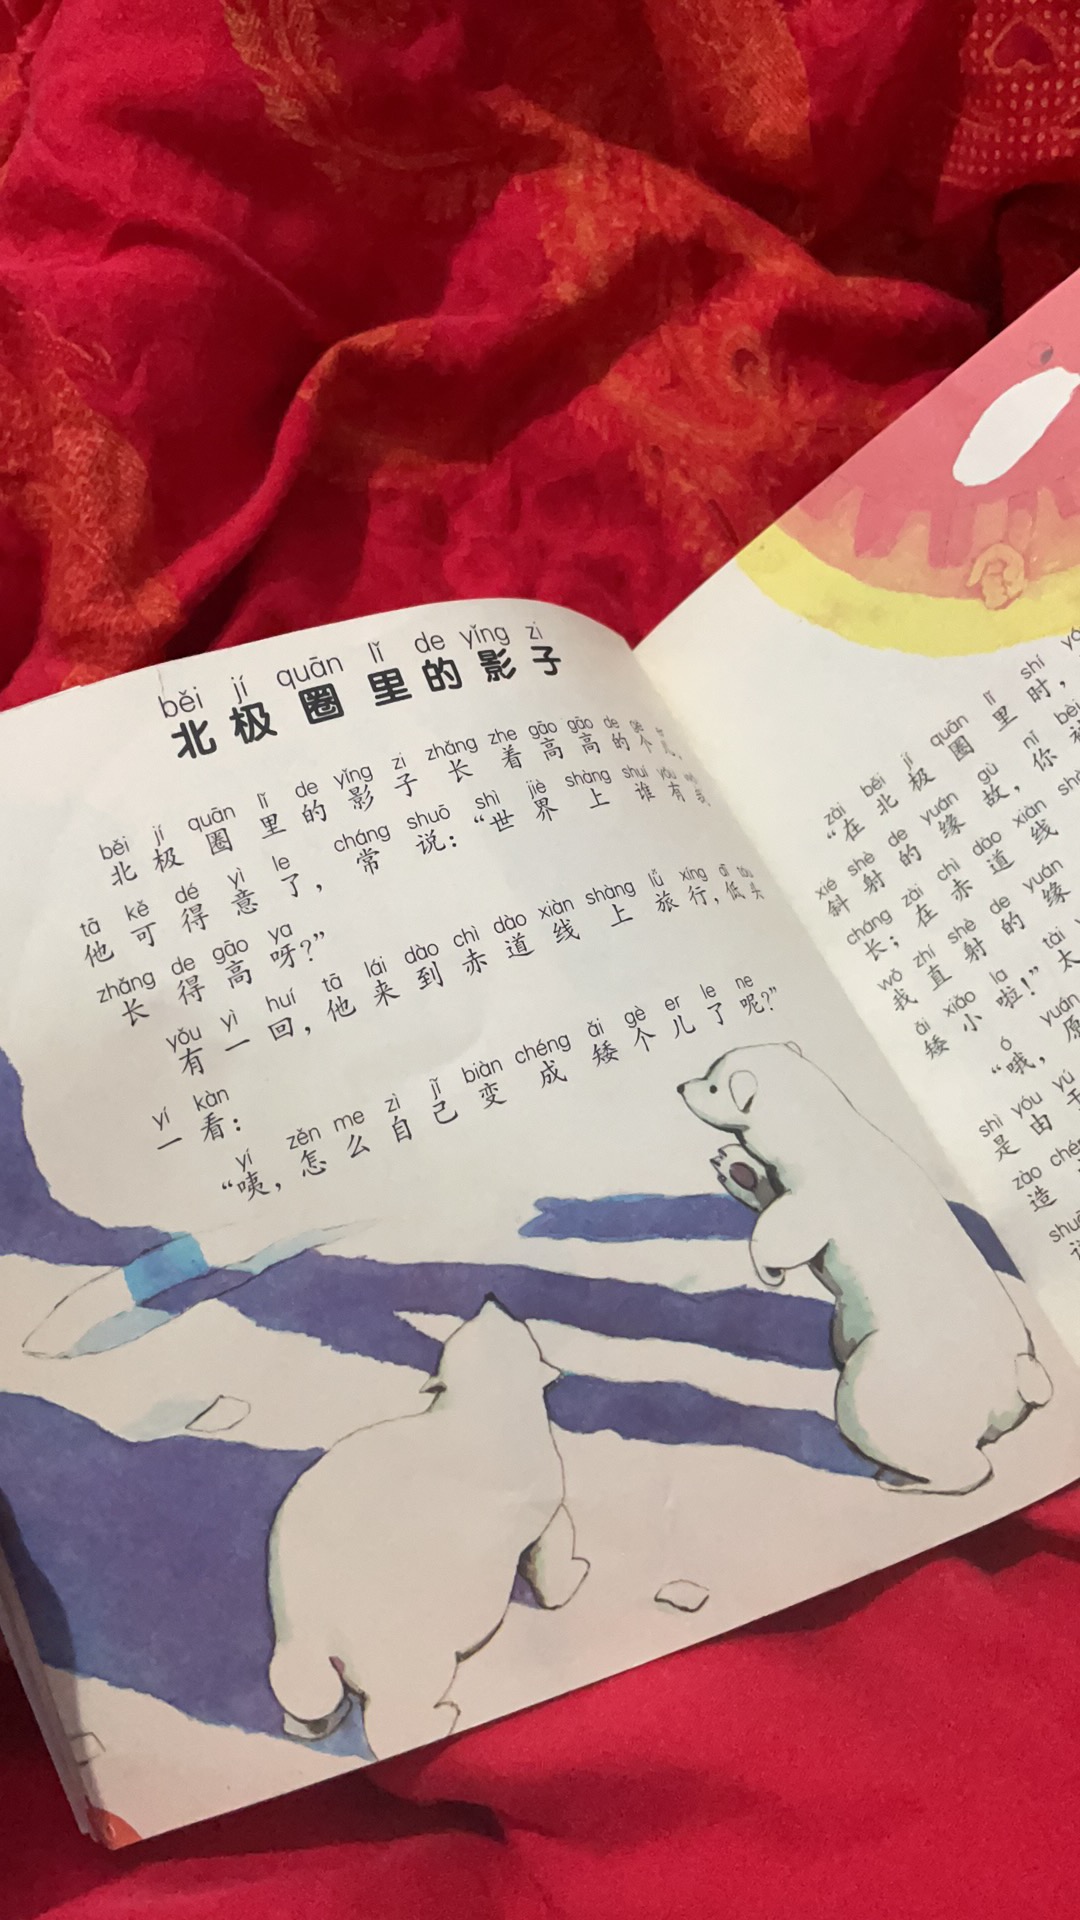 běi jí quān lǐ de yǐng zi
北极圈里的影子
běi jí quān lǐ de yǐng zi zhǎng zhe gāo gāo de gè
北极圈里的影子长着高高的个儿。
tā kě dé yì le cháng shuō shì jiè shàng shuí yǒu
他可得意了，常说：“世界上谁有我
zhǎng de gāo ya
长得高呀？”
yǒu yì huí tā lái dào chì dào xiàn shàng lǚ xíng dī tóu
有一回，他来到赤道线上旅行，低头
yí kàn
一看：
yí zěn me zì jǐ biàn chéng ǎi gè er le ne
“咦，怎么自己变成矮个儿了呢？”
zài běi jí quān lǐ shí
“在北极圈里时，
xié shè de yuán gù nǐ bèi
斜射的缘故，你被
cháng zài chì dào xiàn shàng
长；在赤道线
wǒ zhí shè de yuán
我直射的缘
ǎi xiǎo la tài
矮小啦！”太
ó yuán
“哦，原
shì yóu yú
是由于
zào chéng
造
shuō